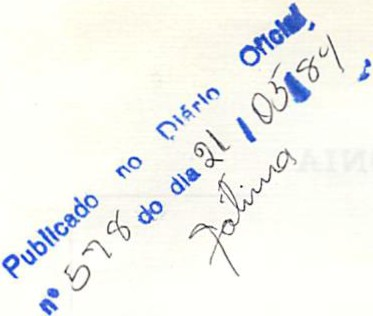 Publicado no Diário Oficial
nº 578 do dia 21/05/84
Fátima